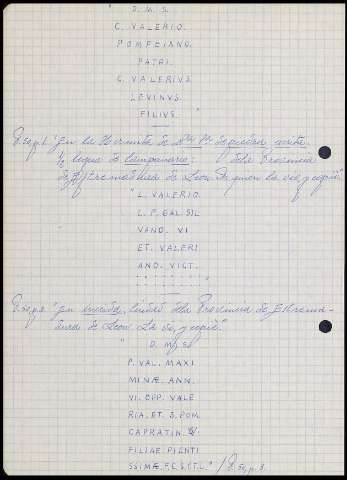 " D. M. S.
C. VALERIO.
POMPEIANO.
PATRI.
C. VALERIVS.
LEVINVS.
FILIVS. "
"En la Hermita de Nra Sra de piedra escrita,
½ legua de Campanario: dela Provincia
de Extremadura de Leon. De quien la vio, y copió."
"L. VALERIO.
L. F. GAL. SIL
VANO. VI
ET. VALERI
ANO. VICT.
"
"En ciudad dela Provincia de Extrema-
dura de Leon. La vio, y copió."
" D. M. S.
P. VAL. MAXI
MINÆ. ANN.
VI. OPP. VALE
RIA. ET. S. POM.
CAPRATIN.
FILIAE. PIENTI
SSIMÆ. F. C. S. T. T. L." / P. 50, p. 3.